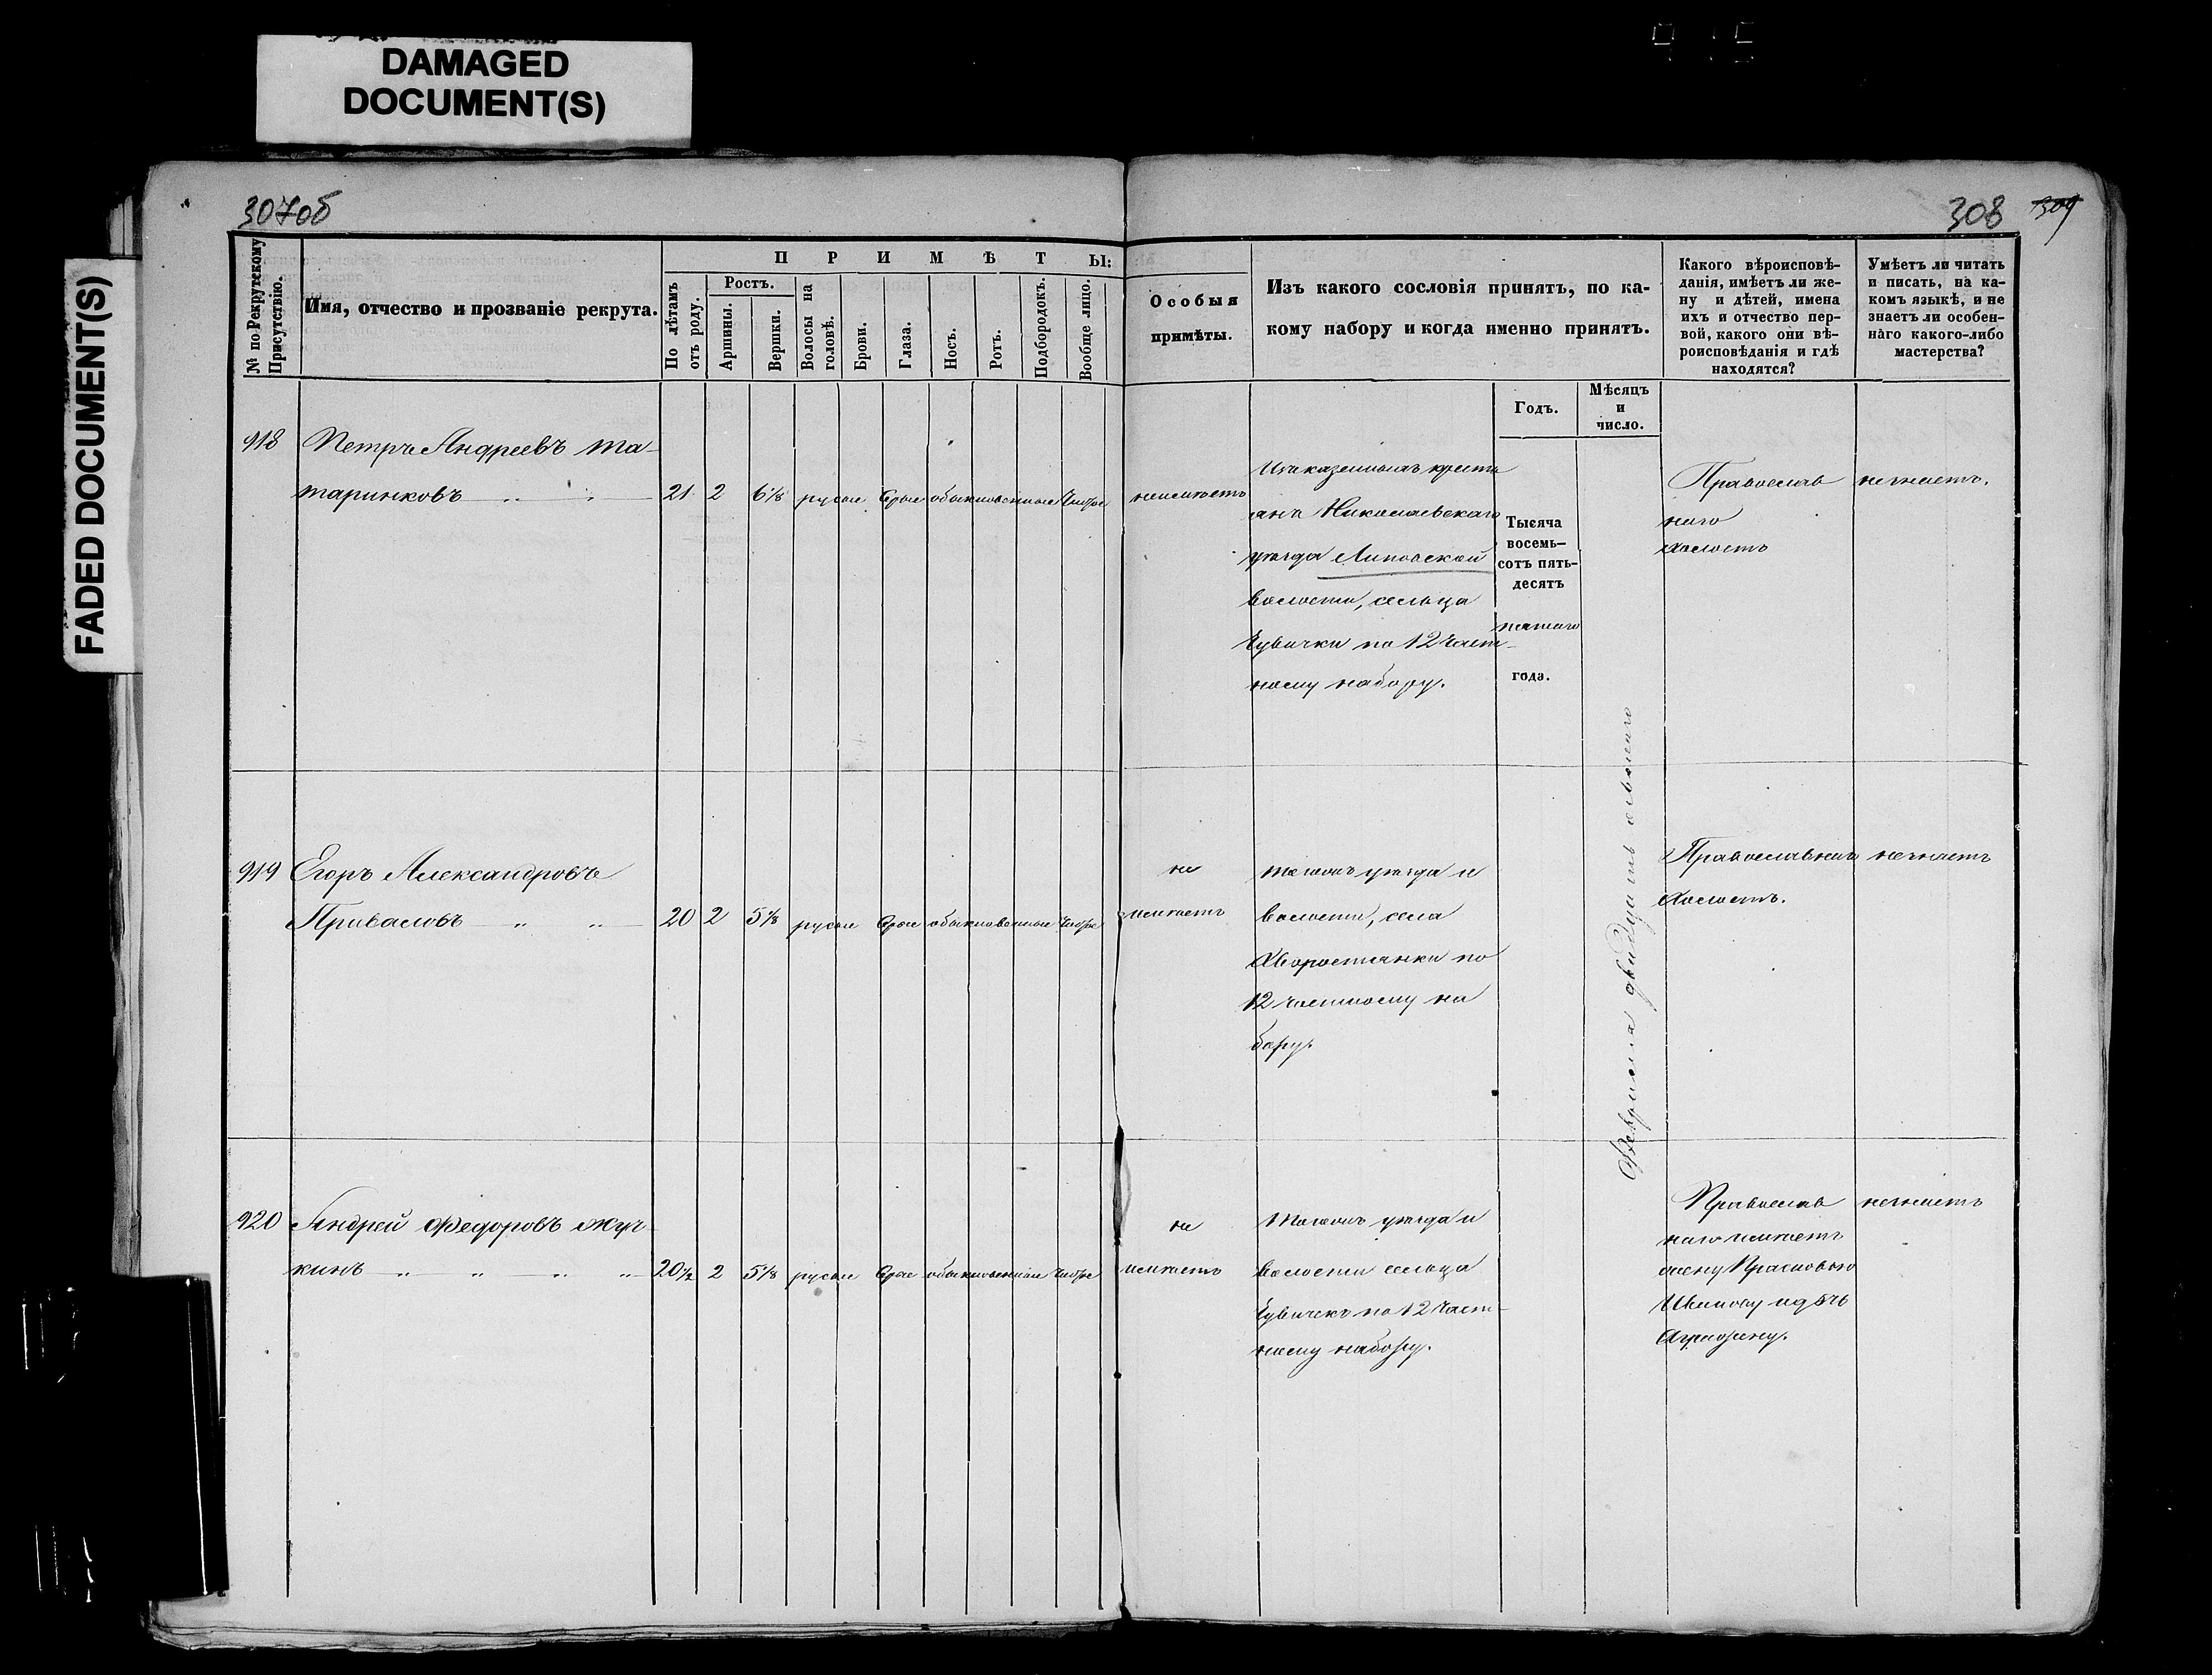 DAMAGED
DOCUMENT(S)
FADED DOCUMENT(S)
307об
308 309
№ по Рекрутскому Присутствію.
Имя, отчество и прозваніе рекрута.
ПРИМѢТЫ:
По лѣтамъ отъ роду.
Ростъ.
Аршины.
Вершки.
Волосы на головѣ.
Брови.
Глаза.
Носъ.
Ротъ.
Подбородокъ.
Вообще лицо.
Особыя
примѣты.
Изъ какого сословія принятъ, по ка-
кому набору и когда именно принятъ.
Годъ.
Мѣсяцъ
и
число.
Какого вѣроисповѣ-
данія, имѣетъ ли же-
ну и дѣтей, имена
ихъ и отчество пер-
вой, какого они вѣ-
роисповѣданія и гдѣ
находятся?
Умѣетъ ли читать
и писать, на ка-
комъ языкѣ, и не
знаетъ ли особен-
наго какого-либо
мастерства?
918 Петръ Андреевъ Та-
таринковъ 21 2 6 1/8 русые Серые обыкновенные Чистое
неимѣетъ
Изъ казенныхъ кресть
янъ Николаевскаго
уѣзда Липовской
волости, сельца
Чувички по 12 част-
ному набору.
Тысяча
восемь-
сотъ пять-
десятъ
пятаго
года.
Февраля двадцать седьмаго
Православ
наго
холостъ
незнаетъ.
919 Егоръ Александровъ
Приваловъ 20 2 5 1/8 русые Серые обыкновенные Чистое
не
имѣетъ
тогожъ уѣзда и
волости, села
Хворостянки по
12 частному на
бору.
Православнаго
холостъ.
незнаетъ
920 Андрей Федоровъ Жур-
кинъ 20 1/2 2 5 1/8 русые Серые обыкновенные Чистое
не
имѣетъ
Тогожъ уѣзда и
волости сельца
Чувичекъ по 12 част-
ному набору.
Православ
наго имѣетъ
жену Прасковью
Иванову и дочь
Аграфену.
незнаетъ